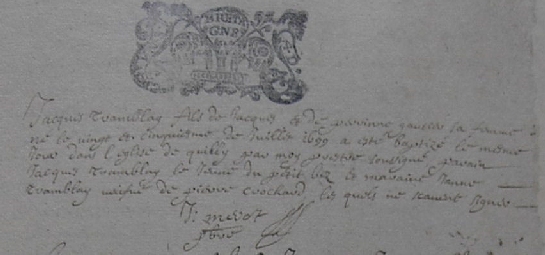 BRETA
GNE
Jacques Tramblay fils de Jacques & de perinne gautier sa femme
né le vingt & cinquiesme de Juillet 1699 a esté baptizé le mesme
jour dans l'eglise de quilly par moy prestre soussigné parain
Jacques Tramblay le jeune du petit biz & maraine Janne
Tramblay niepce de pierre cochard les quels ne scavent signer